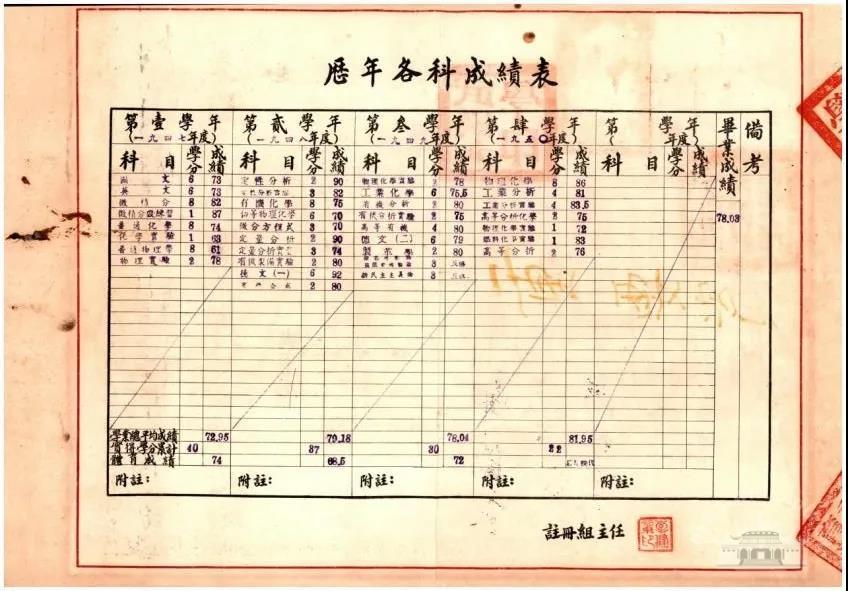 歷年各科成績表
第壹學年 第貳學年 第叁學年 第肆學年 第( 學年 畢業成績 備考
(一九四七年度) (一九四八年度) (一九四九年度) (一九五〇年度) 學年度)
科目 學分 成績 科目 學分 成績 科目 學分 成績 科目 學分 成績 科目 學分 成績
國文 6 73 定性分析 2 90 物理化學實驗 78 物理化學 8 86
英文 6 73 定性分析實驗 3 82 工業化學 6 75.5 工業分析 4 81
微積分 8 82 有機化學 8 75 有機分析 2 80 工業分析實驗 4 83.5 78.03
微積分演練習 1 87 初等物理化學 6 70 有機分析實驗 2 75 高等分析化學 2 75
普通化學 8 74 微分方程式 3 70 高等有機 4 80 物理化學實驗 1 72
化學實驗 1 63 定量分析 2 90 德文(二) 6 79 燃料化學實驗 1 83
普通物理學 8 61 定量分析實驗 3 74 製革學 2 80 高等分析 2 76
物理實驗 2 78 有機製備實驗 2 80 3
德文(一) 6 92 新民主主義論 3
2 80
學業總平均成績 72.95 79.18 78.04 81.95
實得學分累計 40 37 30 22
體育成績 74 68.5 72
附註: 附註: 附註: 附註: 附註:
註冊組主任